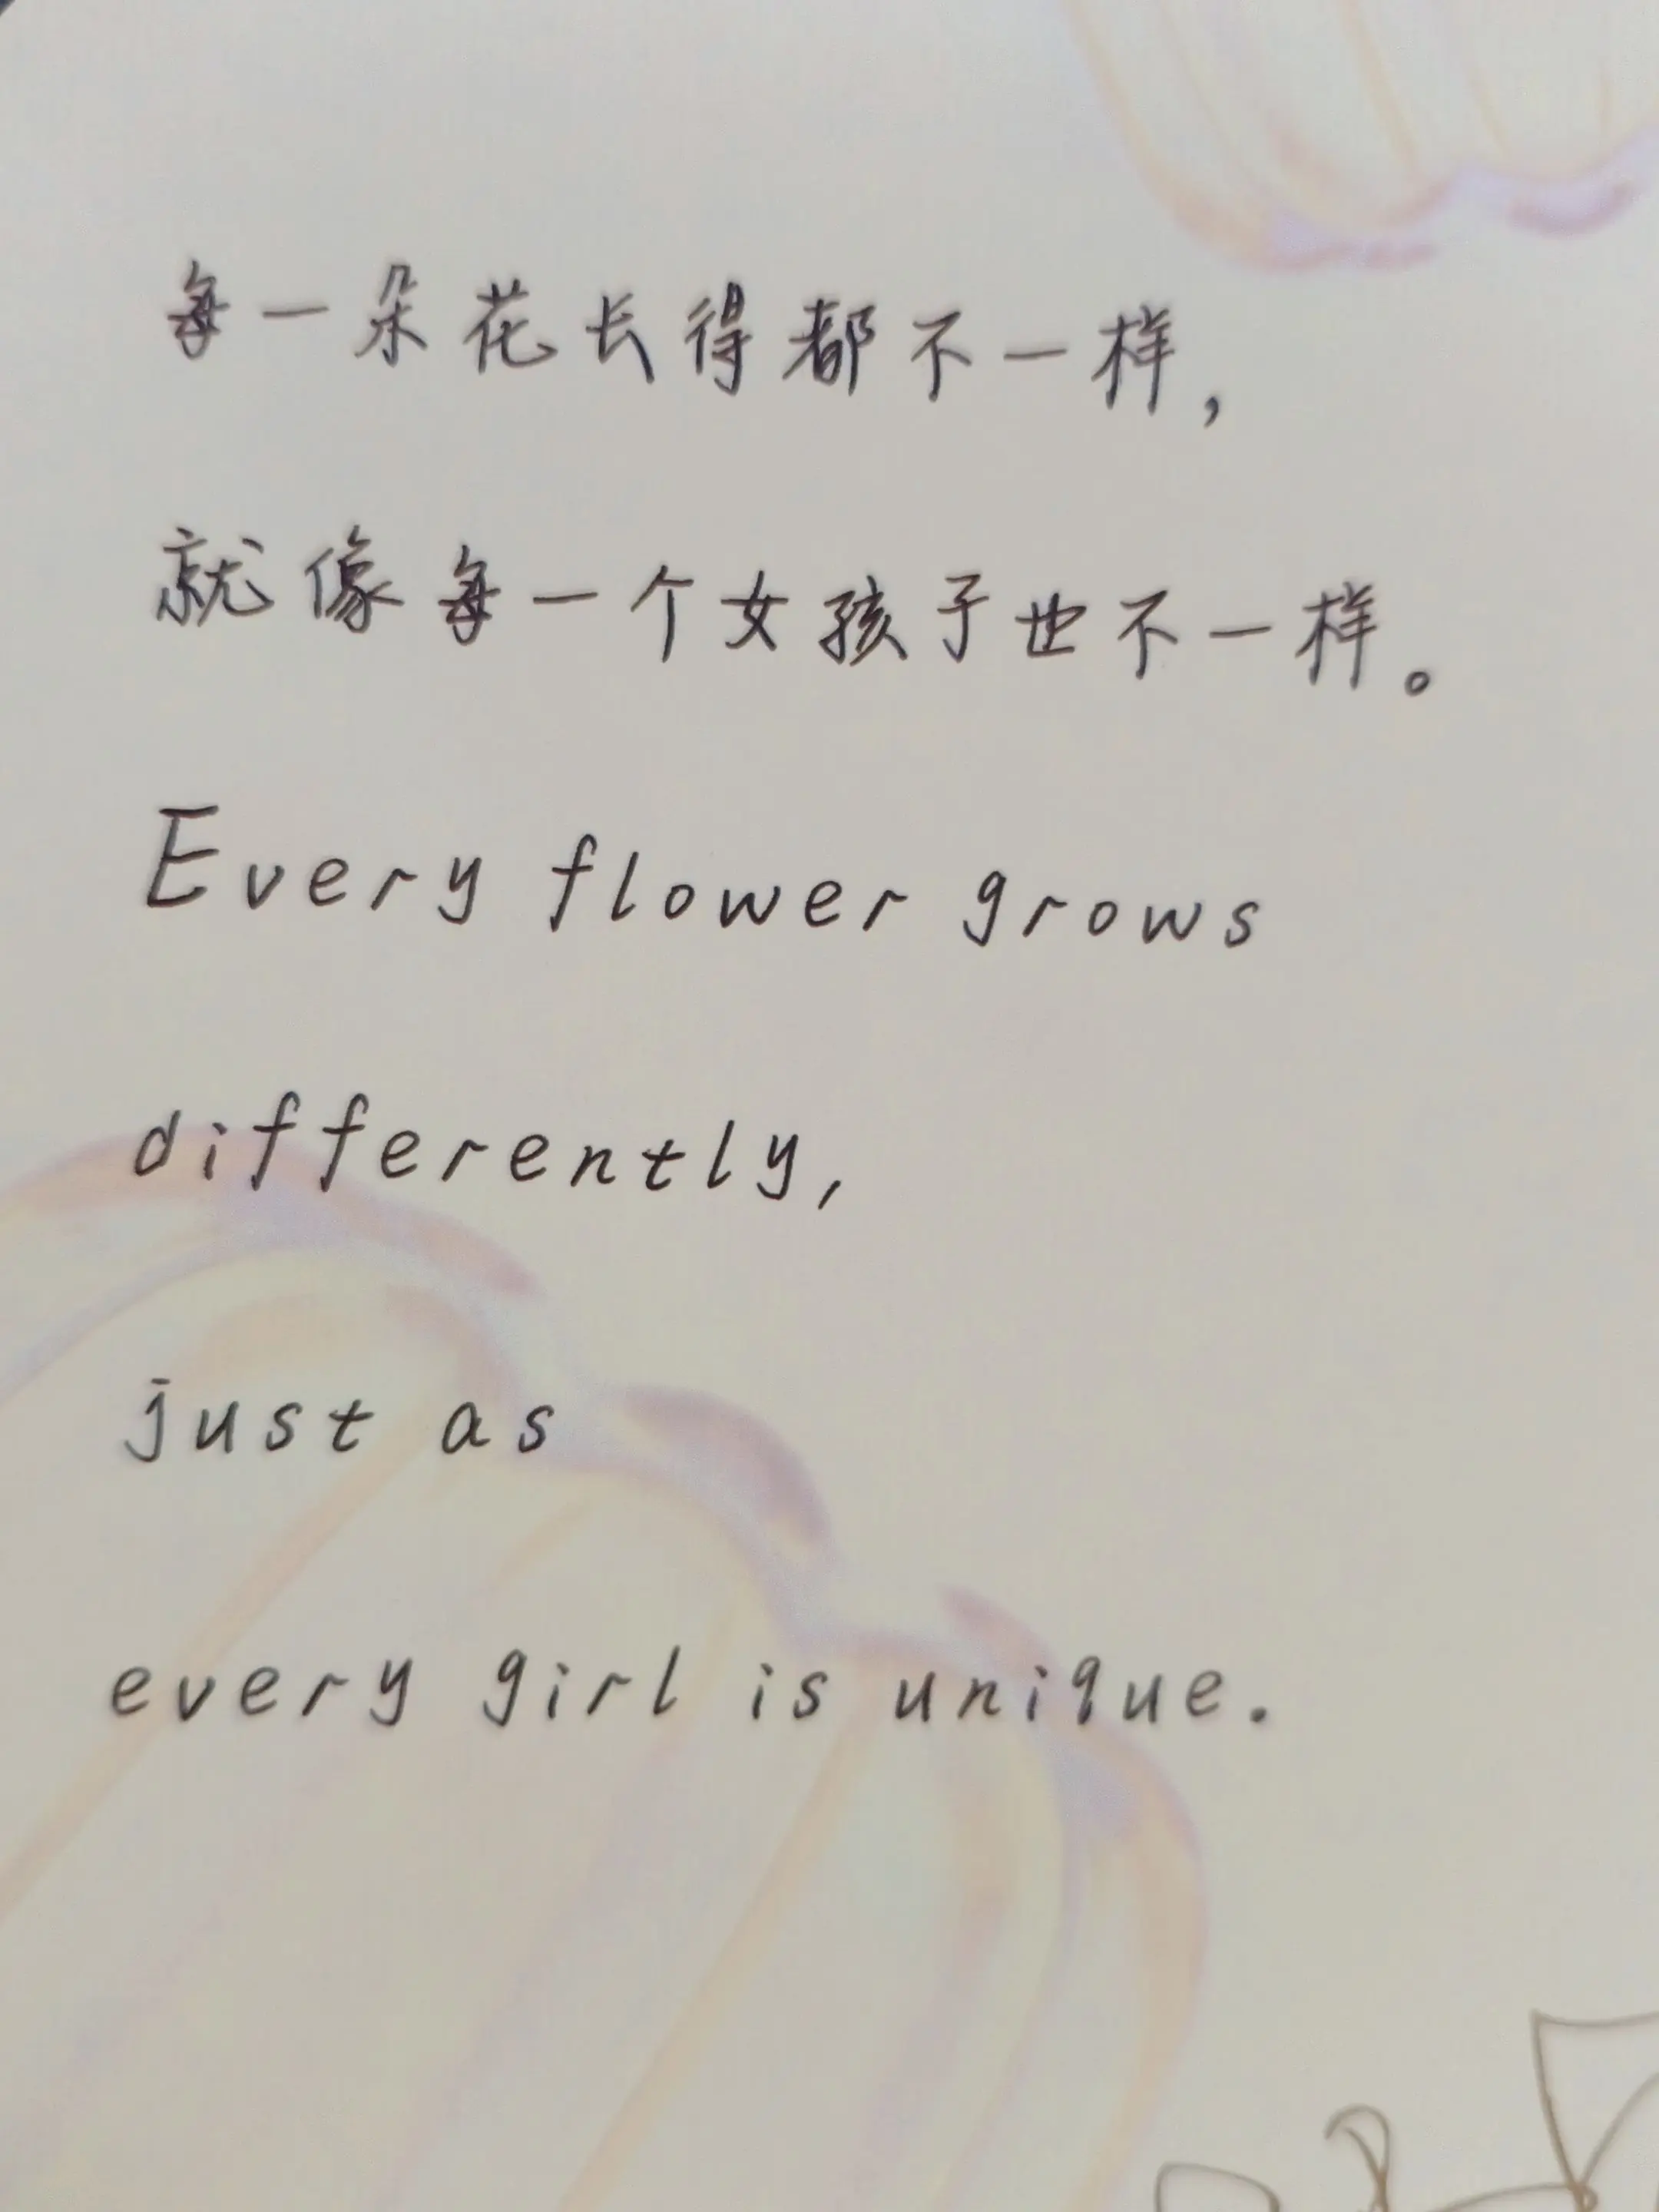 每一朵花长得都不一样，
就像每一个女孩子也不一样。
Every flower grows
differently,
just as
every girl is unique.